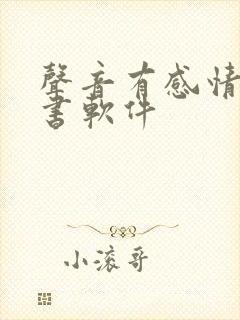 聲音有感情
書軟件
小滚哥